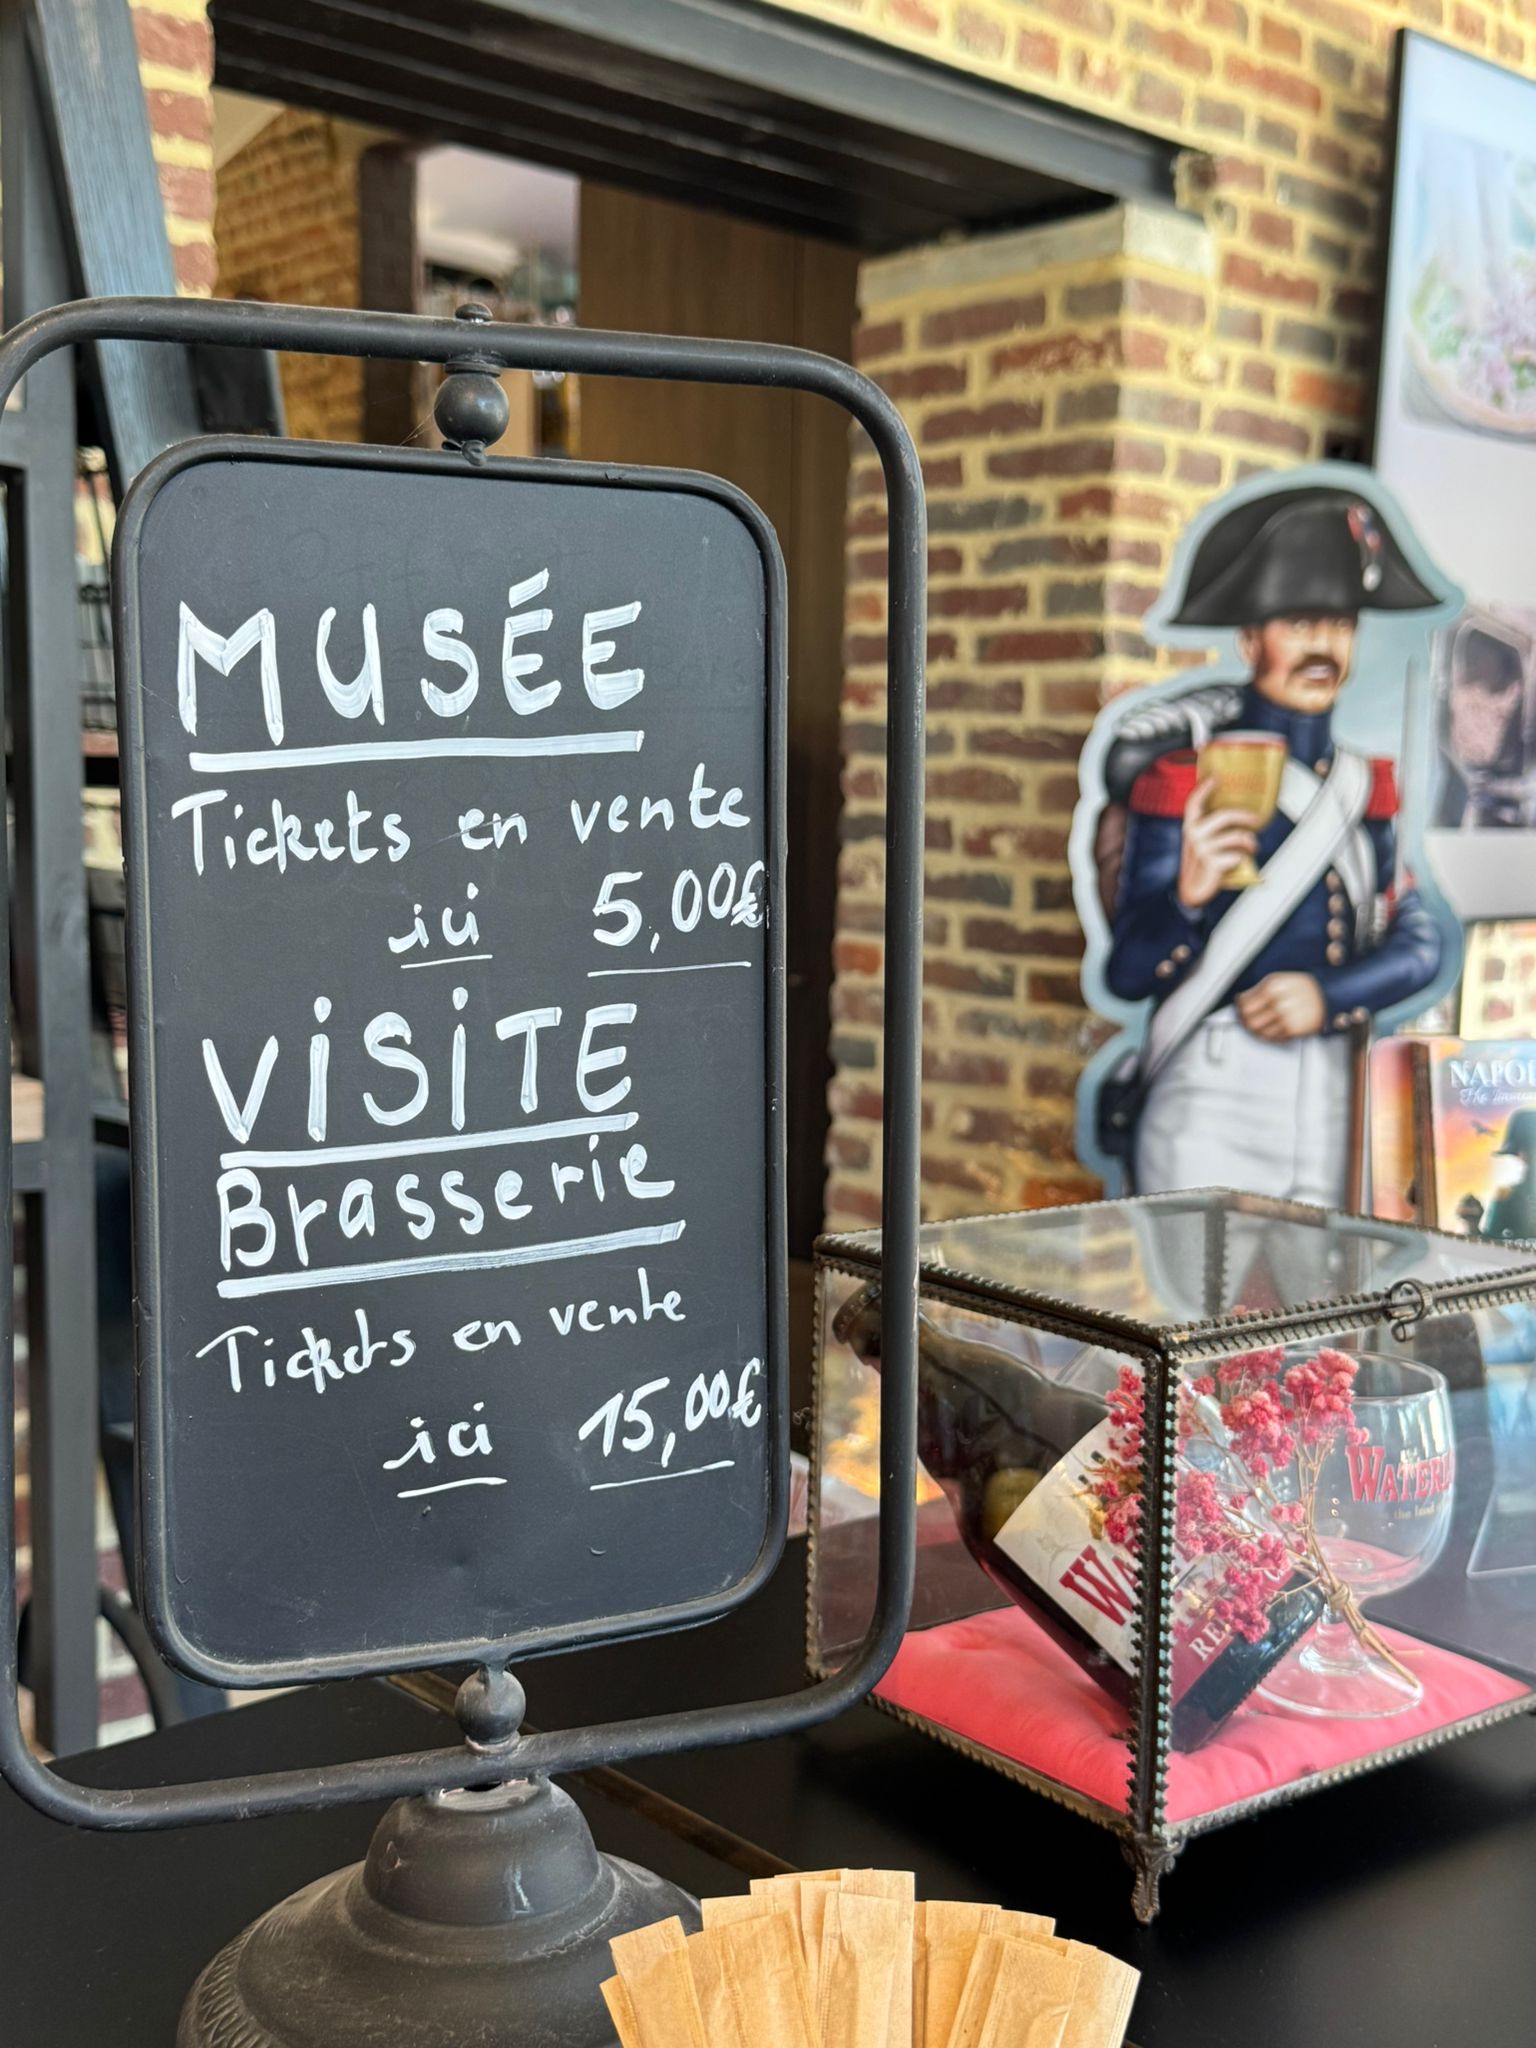 MUSÉE
Tickets en vente
ici 5,00€
VISITE
Brasserie
Tickets en vente
ici 15,00€
NAPOL
WATERL
the land
WA
RE